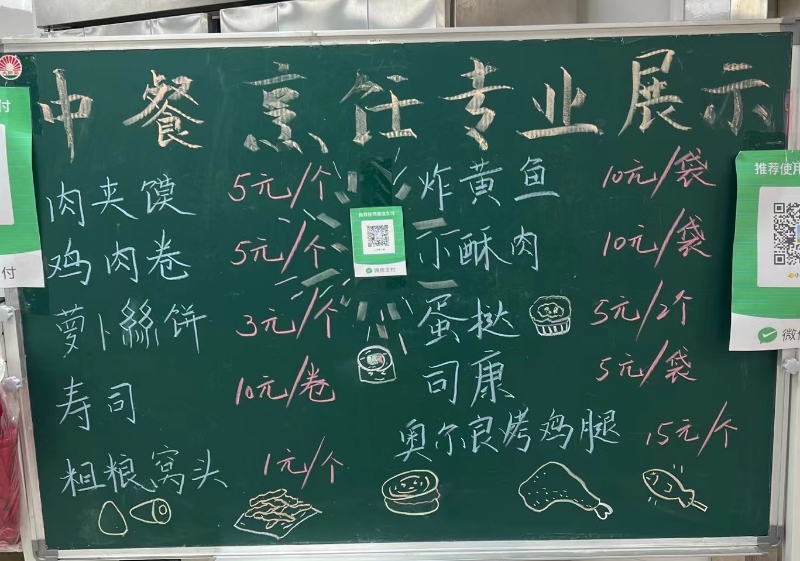 中餐烹饪专业展示
肉夹馍 5元/个
炸黄鱼 10元/袋
鸡肉卷 5元/个
小酥肉 10元/袋
萝卜絲饼 3元/个
蛋挞 5元/2个
寿司 10元/卷
司康 5元/袋
奥尔良烤鸡腿 15元/个
粗粮窝头 1元/个
推荐使用微信支付
微信支付
付
付
推荐使用
微信